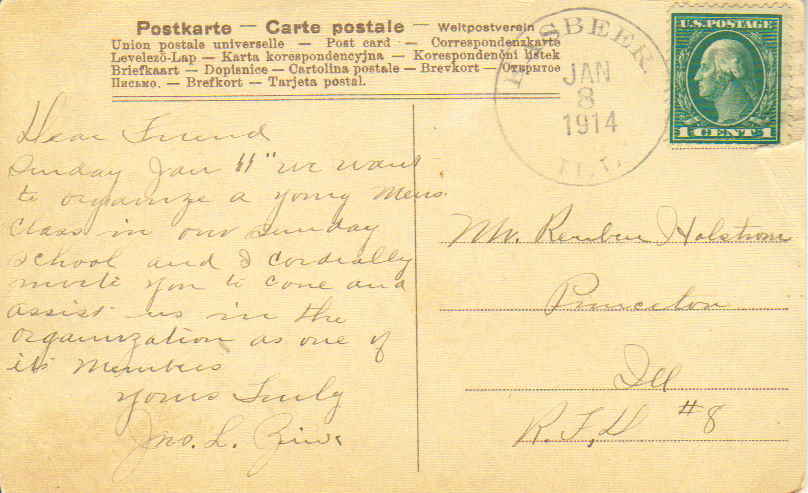 Postkarte — Carte postale — Weltpostverein
Union postale universelle — Post card — Correspondenzkarte
Levelező-Lap — Karta korespondencyjna — Korespondenční lístek
Briefkaart — Dopisnice — Cartolina postale — Brevkort — Открытое
Письмо. — Brefkort — Tarjeta postal.
JAN
8
1914
ILL.
U.S. POSTAGE
1 CENT 1
Dear Friend
Sunday Jan 11" we want
to organize a young Mens
Class in our Sunday
School and I cordially
invite you to come and
assist us in the
organization as one of
its Members
Yours Truly
Jno. L.
Mr. Reuben Holstrom
Princeton
Ill
R.F.D. #8